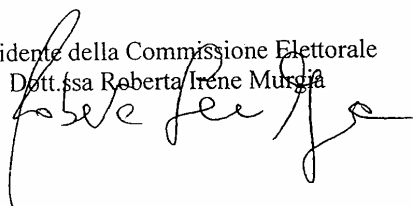 idente della Commissione Elettorale
Dott.ssa Roberta Irene Murgia